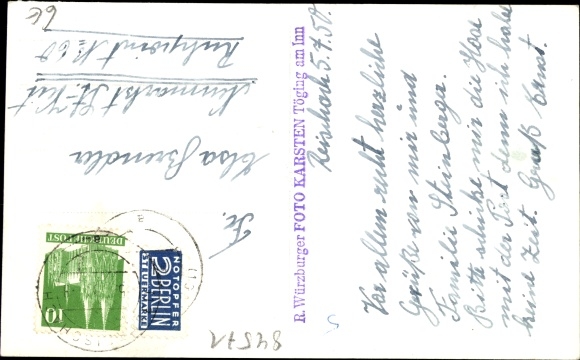 Reischach 5.4.50.
Vor allem recht herzliche
Grüße von mir und
Familie Steinberger.
Bitte schicke mir die Hose
mit der Post denn ich habe
keine Zeit. Gruß Ernst.
R. Würzburger FOTO KARSTEN Töging am Inn
Fr.
Elsa
Neumarkt St. Veit
DEUTSCHE POST
10
NOTOPFER
2 BERLIN
STEUERMARKE
84571